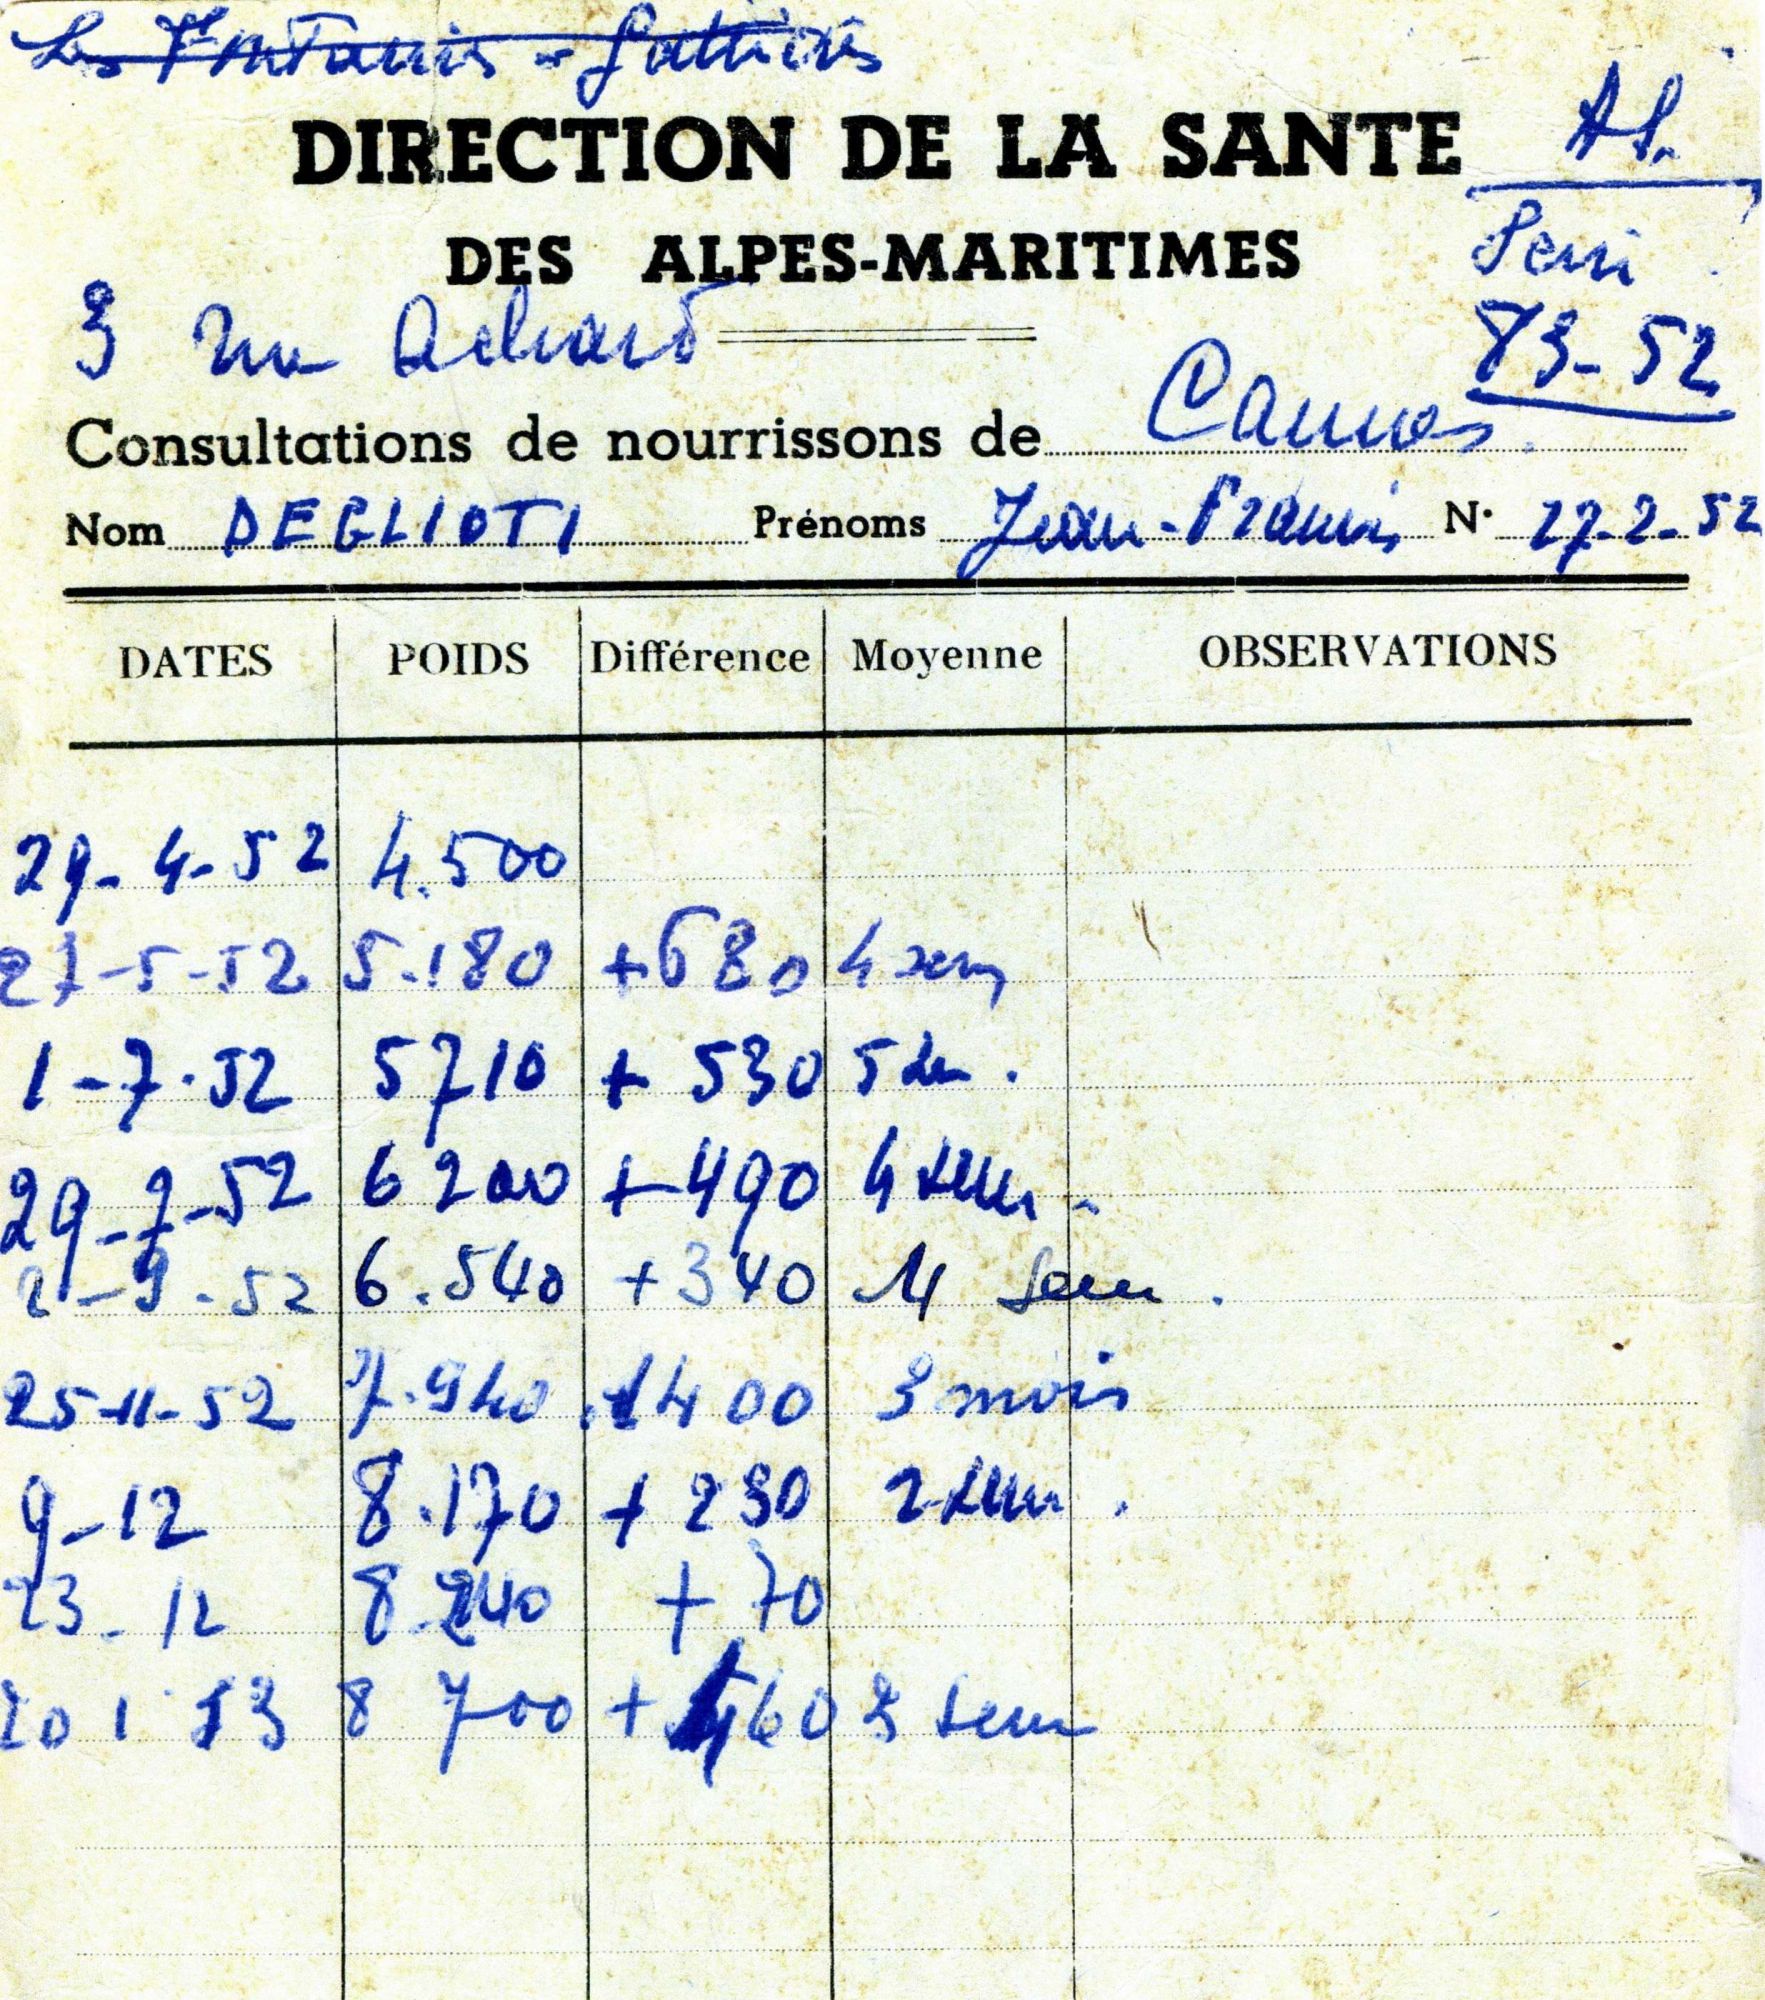 Les
DIRECTION DE LA SANTE
DES ALPES-MARITIMES
3 rue Achard
83-52
Consultations de nourrissons de Cannes.
Nom DEGLIOTI Prénoms Jean-Francis N° 27-2-52
DATES POIDS Différence Moyenne OBSERVATIONS
29-4-52 4.500
27-5-52 5.180 +680 4 sem
1-7-52 5710 + 530 5 sem.
29-7-52 6200 +490 4 sem.
2-9-52 6.540 +340 4 sem.
25-11-52 7.940 1400 3 mois
9-12 8.170 + 230 2 sem.
23-12 8.240 + 70
20 1 53 8 700 + 460 3 sem